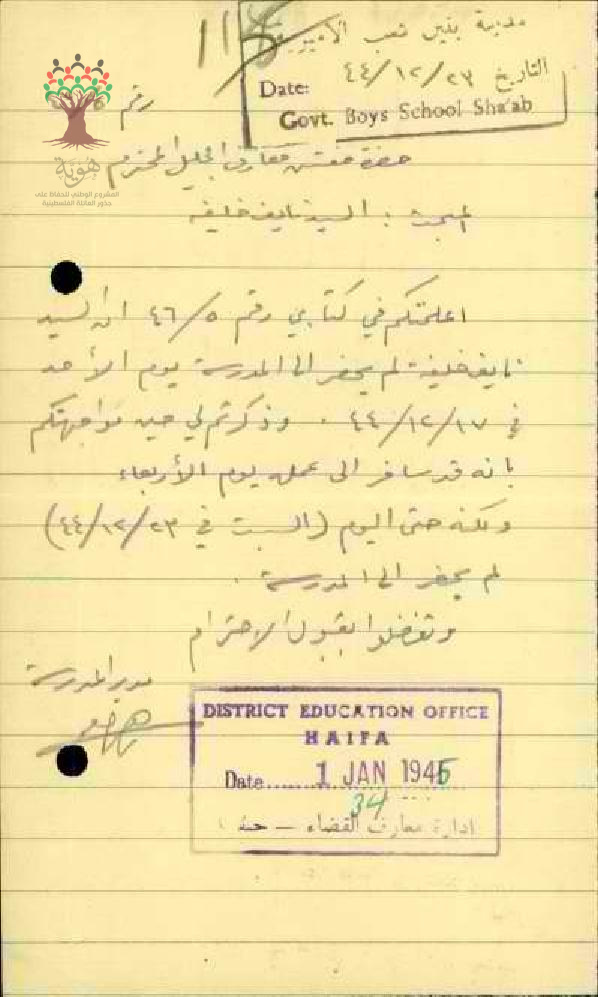 118
مدرسة بنين شعب الأميرية
التاريخ ٤٤/١٢/٢٣
Date:
Govt. Boys School Sha'ab
رقم
هوية
المشروع الوطني للحفاظ على
جذور العائلة الفلسطينية
حضرة مفتش معارف الجليل المحترم
المبحث : السيد نايف خليفه
اعلمتكم في كتابي رقم ٤٦/٥ ان السيد
نايف خليفة لم يحضر الى المدرسة يوم الأحد
في ٤٤/١٢/١٧ . وذكرتم لي حين مواجهتكم
بانه قد سافر الى عمله يوم الأربعاء
ولكنه حتى اليوم (السبت في ٤٤/١٢/٢٣)
لم يحضر الى المدرسة .
وتفضلوا بقبول الاحترام
مدير المدرسة
DISTRICT EDUCATION OFFICE
HAIFA
Date...... 1 JAN 1945
34
ادارة معارف القضاء –